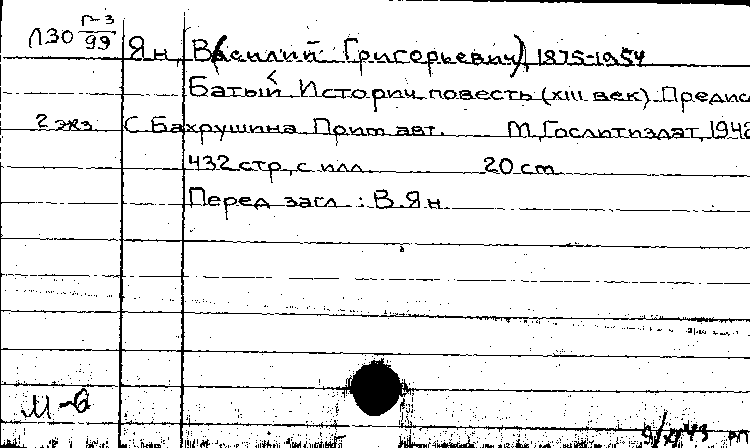 Л30 Г-3
99
Ян, В(асилий Григорьевич), 1875-1954
Батый. Историч. повесть (XIII век). Предис
2 экз. С. Бахрушина. Прим. авт. М., Гослитиздат, 1942
432 стр., с илл. 20 cm.
Перед загл.: В. Ян.
М-б